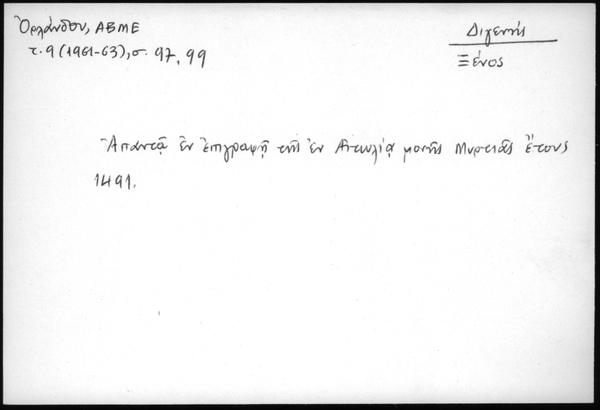 Ὀρλάνδου, ΑΒΜΕ
τ. 9 (1961-63), σ. 97, 99
Διγενής
Ξένος
Ἀπαντᾷ ἐν ἐπιγραφῇ τῆς ἐν Αἰτωλίᾳ μονῆς Μυρτιᾶς ἔτους
1491.